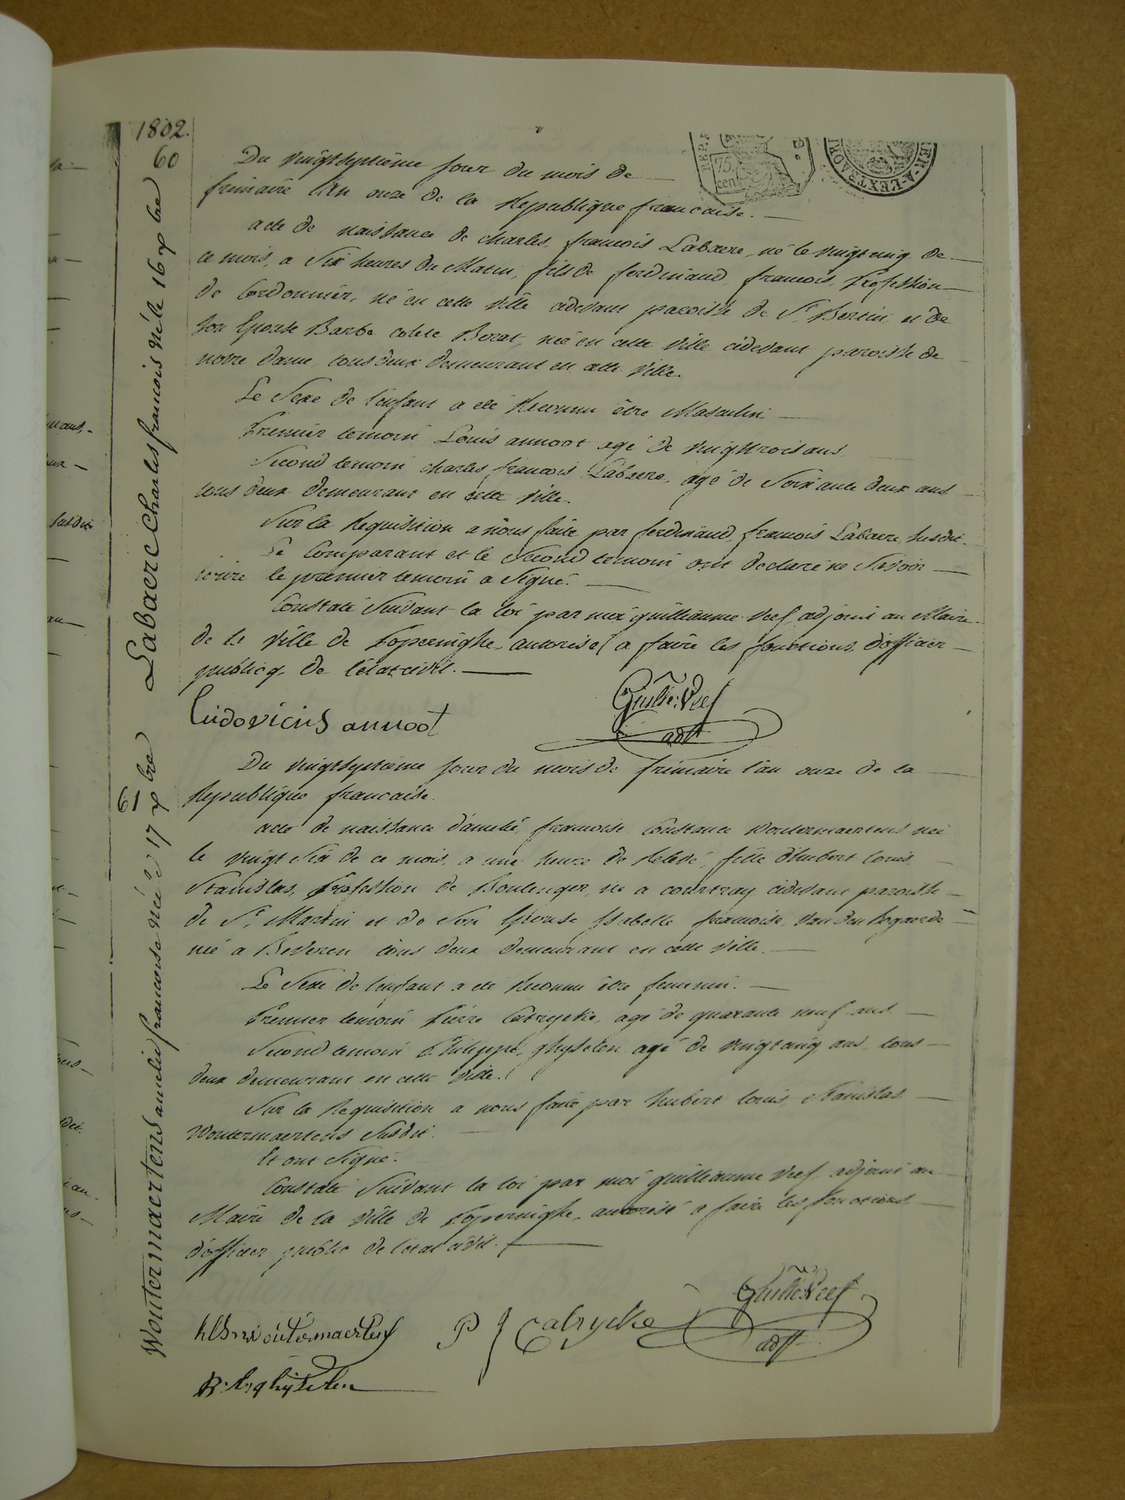 1802.
60
Labaere Charles francois né le 16 xbre
Du vingtseptième Jour du mois de
frimaire l'An onze de la Republique francaise.
acte de naissance de charles francois Labaere, né le vingtcinq de
ce mois, a Six heures du Matin, fils de ferdinand francois, Profession
de Cordonnier, né en cette ville cidevant paroisse de St Bertin et de
Son Epouse Barbe colete Berat, née en cette ville cidevant paroisse de
notre dame, tous deux Demeurant en cette ville.
Le Sexe de l'enfant a été Reconnu être Masculin
Premier temoin Louis annoot agé de vingttrois ans
Second temoin charles francois Labaere, agé de Soixante deux ans
tous deux demeurant en cette ville.
Sur la Requisition a nous faite par ferdinand francois Labaere Susdit
Le Comparant et le Second temoin ont declaré ne Savoir
ecrire le premier temoin a Signé.
Constaté Suivant la loi par moi guilleaume Veef adjoint au Maire
de la ville de Poperinghe, autorisé a faire les fonctions d'officier
publicq de l'état civil.
Ludovicus annoot
Guille. Veef
adjt
61
Woutermaertens amelie francoise née le 17 xbre
Du vingtseptième Jour du mois de frimaire l'an onze de la
Republique francaise.
acte de naissance d'amelié francoise Constance Woutermaertens née
le vingt Six de ce mois, a une heure de Relevé, fille d'hubert louis
Stanislas, Profession de Boulenger, né a courtray cidevant paroisse
de St Martin et de Son Epouse Isabelle francoise Van den Bogaerde
née a Beveren tous deux demeurant en cette ville.
Le Sexe de l'enfant a été Reconnu être feminin.
Premier temoin Pierre Cabrycke, agé de quarante neuf ans
Second temoin Philippe ghyselen agé de vingtcinq ans tous
deux demeurant en cette ville.
Sur la Requisition a nous faite par hubert louis Stanislas
Woutermaertens Susdit
Et ont Signé.
Constaté Suivant la loi par moi guilleaume Veef adjoint au
Maire de la ville de Poperinghe, autorisé a faire les fonctions
d'officier public de l'état civil.
Guille. Veef
adjt
hLS woutermaertens P J Cabrycke